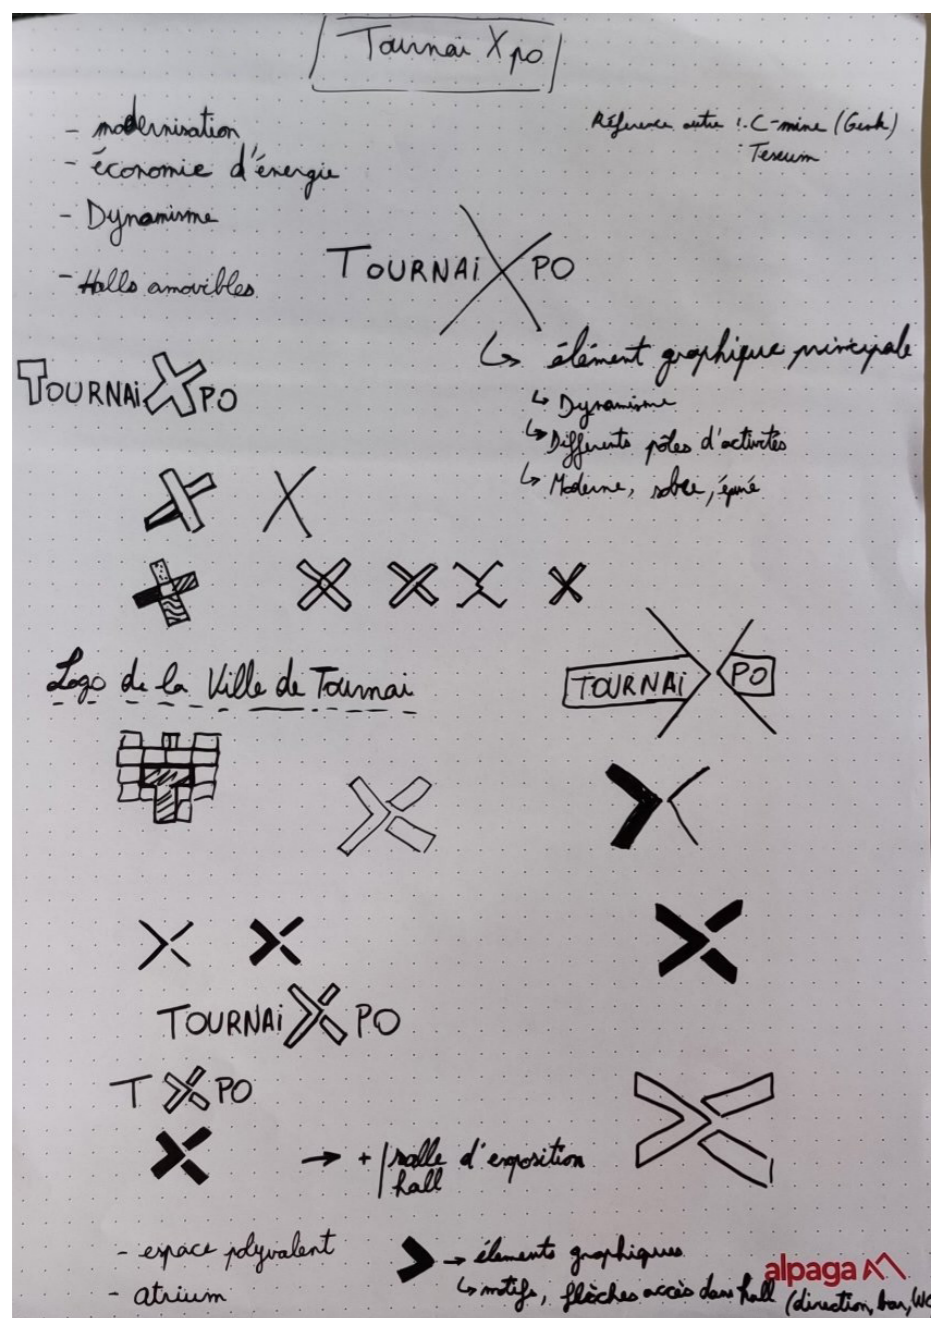 Tournai Xpo
- modernisation
- économie d'énergie
- Dynamisme
- Halls amovibles
Référence autre : C-mine (Genk)
Teseum
TOURNAi X PO
↳ élément graphique principale
↳ Dynamisme
↳ Différents pôles d'activités
↳ Moderne, sobre, épuré
TOURNAi X PO
Logo de la Ville de Tournai
TOURNAi PO
TOURNAi X PO
T X PO
→ + salle d'exposition
hall
- espace polyvalent
- atrium
→ éléments graphiques
↳ motifs, flèches accès dans hall (direction, bar, WC
alpaga